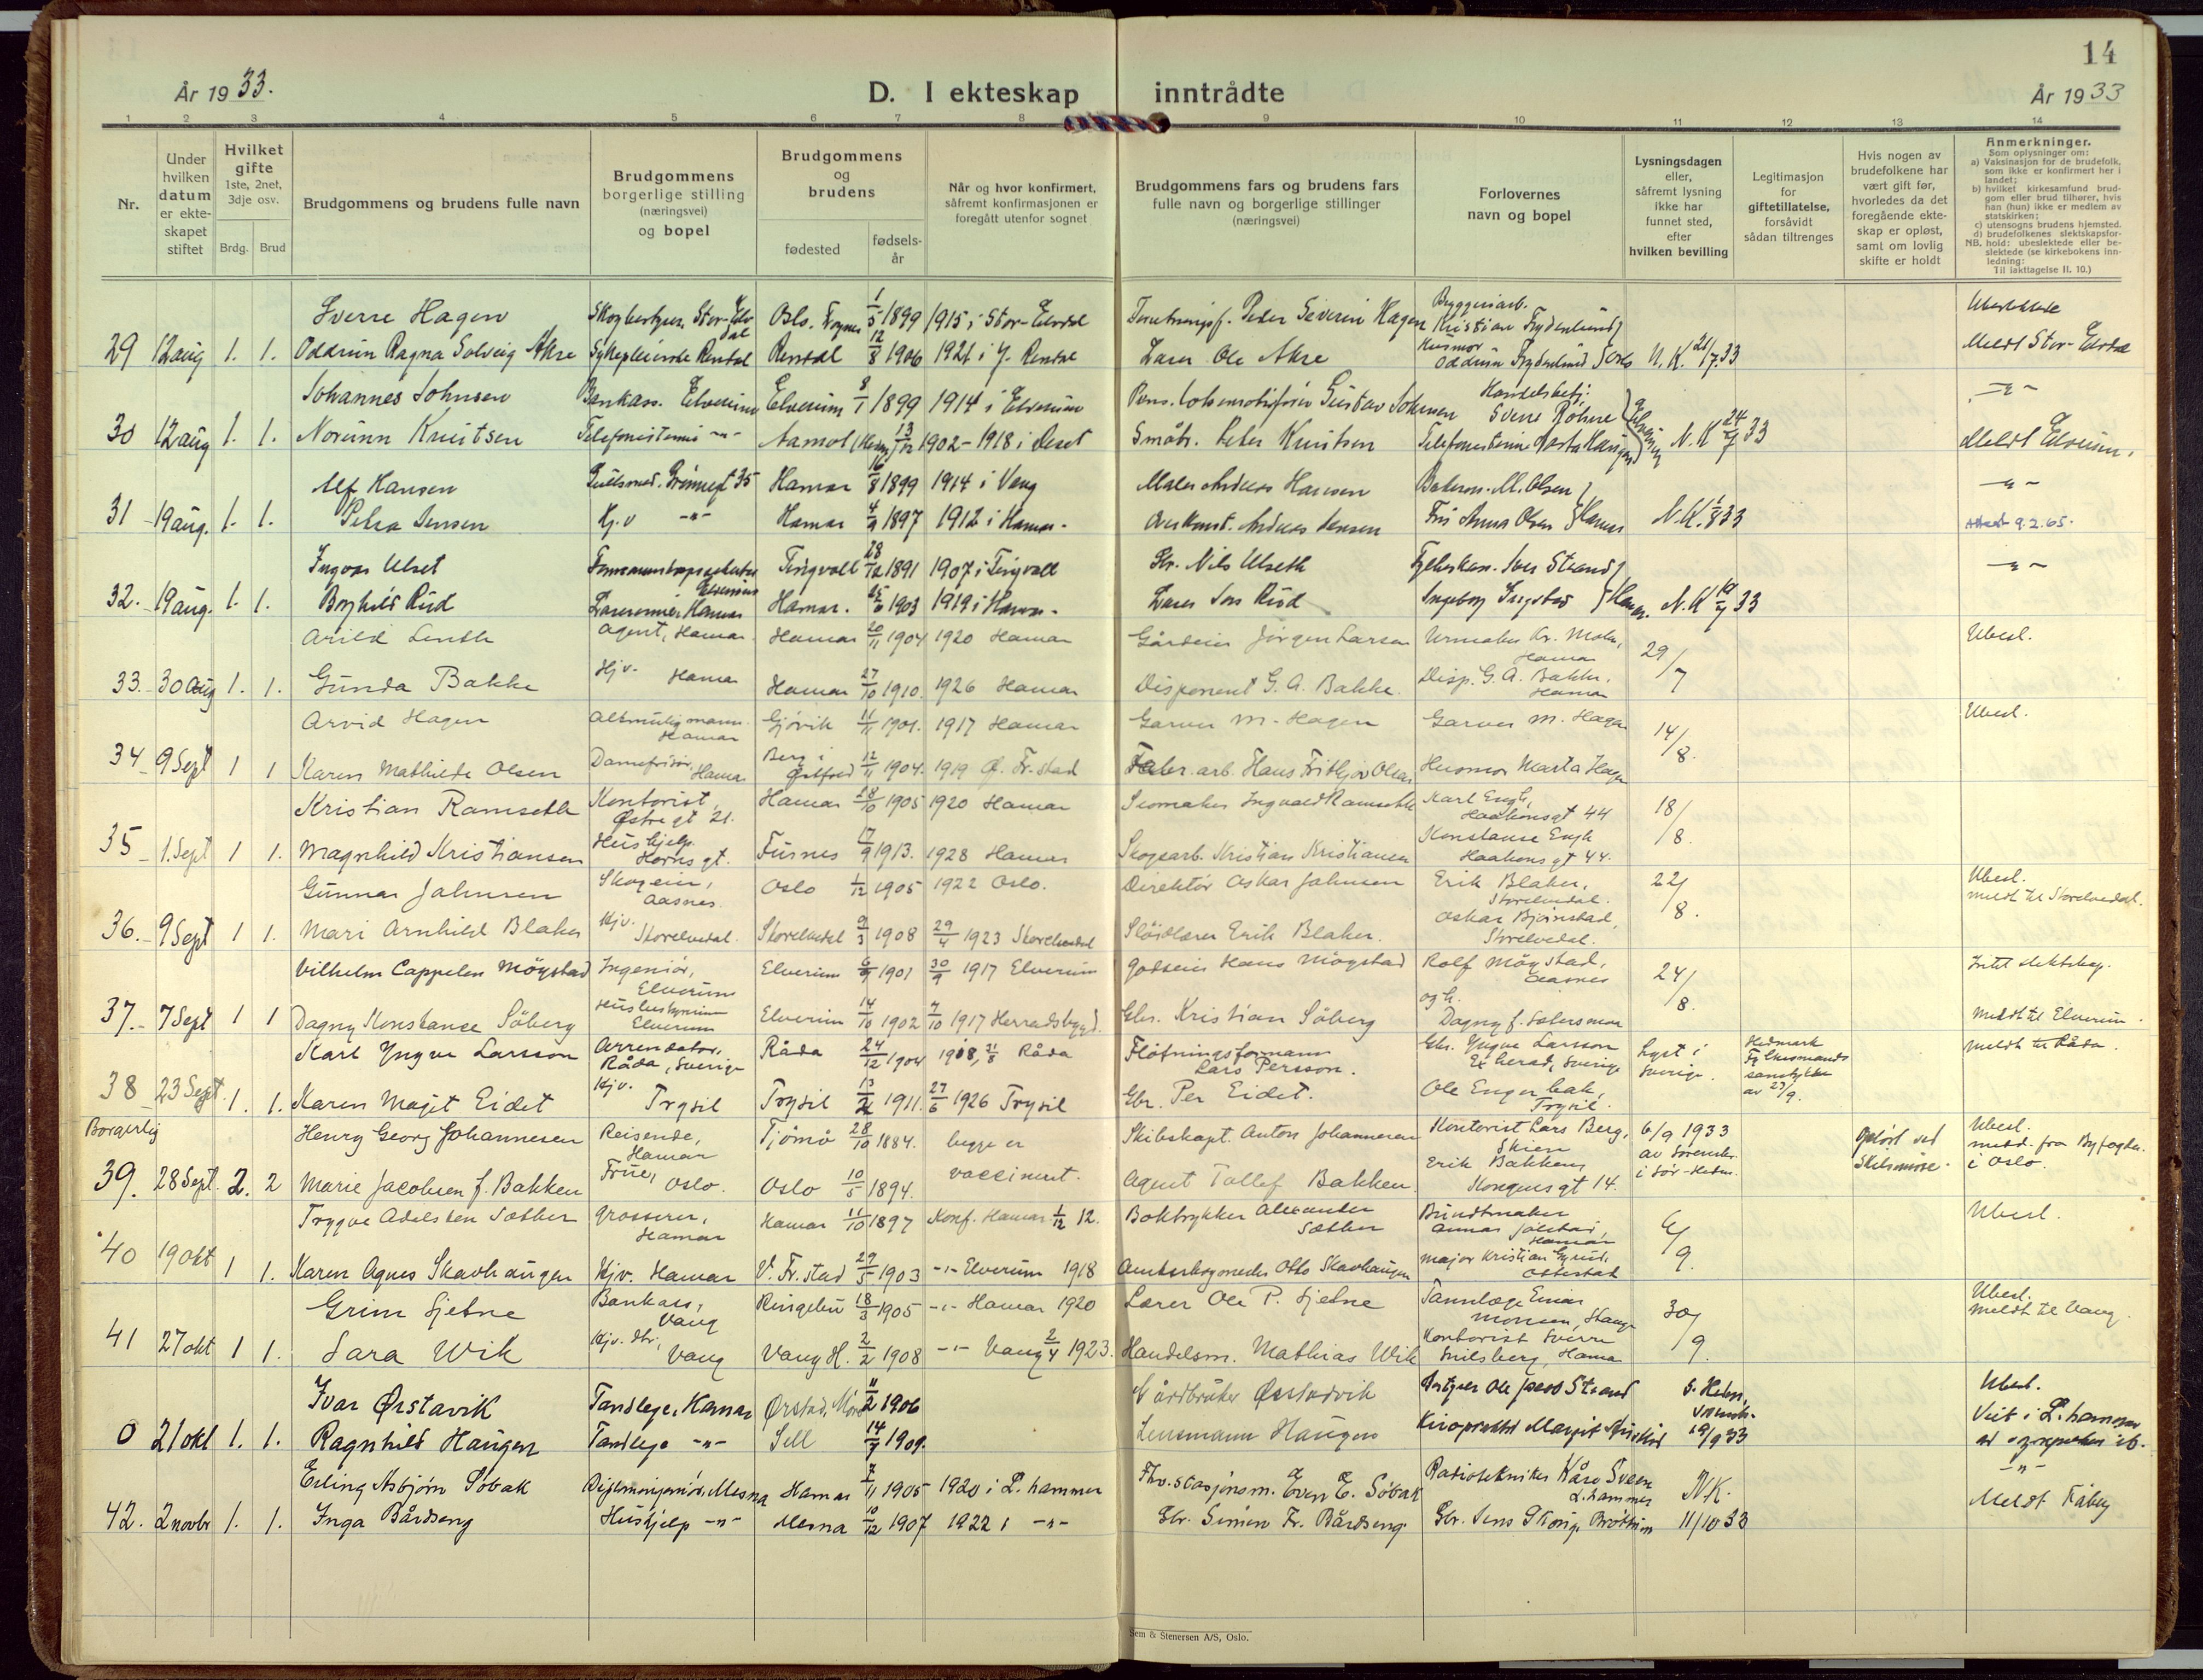 14
År 1933.
D. I ekteskap inntrådte
År 1933
1 2 3 4 5 6 7 8 9 10 11 12 13 14
Nr.
Under hvilken datum er ekteskapet stiftet
Hvilket gifte
1ste, 2net, 3dje osv.
Brdg. Brud
Brudgommens og brudens fulle navn
Brudgommens borgerlige stilling (næringsvei) og bopel
Brudgommens og brudens
fødested
fødselsår
Når og hvor konfirmert, såfremt konfirmasjonen er foregått utenfor sognet
Brudgommens fars og brudens fars fulle navn og borgerlige stillinger (næringsvei)
Forlovernes navn og bopel
Lysningsdagen eller, såfremt lysning ikke har funnet sted, efter hvilken bevilling
Legitimasjon for giftetillatelse, forsåvidt sådan tiltrenges
Hvis nogen av brudefolkene har vært gift før, hvorledes da det foregående ekteskap er opløst, samt om lovlig skifte er holdt
Anmerkninger.
Som oplysninger om:
a) Vaksinasjon for de brudefolk, som ikke er konfirmert her i landet;
b) hvilket kirkesamfund brudgom eller brud tilhører, hvis han (hun) ikke er medlem av statskirken;
c) utensogns brudens hjemsted.
d) brudefolkenes slektskapsforhold: ubeslektede eller beslektede (se kirkebokens innledning:
NB.
Til iakttagelse II. 10.)
Sverre Hagen Skogbestyrer, Stor-Elvdal Oslo. Frogner 1/5 1899 1915 i Stor-Elvdal Peder Severin Hagen Kristian Frydenlund
29 12 aug 1. 1. Oddrun Ragna Solveig Akre Sykepleierske Rendal Rendal 12/8 1906 1921 i Y. Rendal Lærer Ole Akre Husmor Oddrun Frydenlund Oslo N.K. 21/7.33 Meldt Stor-Elvdal
Johannes Johnsen Bankass. Elverum Elverum 8/1 1899 1914 i Elverum Pens. Lokomotivfører Gustav Johnsen Sverre Rohne -"-
30 12 aug 1. 1. Norunn Knutsen Telefonistinne -"- Aamot 13/12 1902 - 1918 i Deset Småbr. Peter Knutsen Telefonistinne N.K 24/7 33 Meldt Elverum.
Alf Hansen Gullsmed. Grønnegt 35 Hamar 16/8 1899 1914 i Vang Maler Andreas Hansen M. Olsen -"-
31 19 aug. 1. 1. Petra Jensen Hj.v -"- Hamar 4/9 1897 1912 i Hamar. Andreas Jensen Anna Olsen Hamar N.K. 1/8 33 Attest 9.2.65.
Ingvar Ulset Elverum Tingvoll 28/12 1891 1907 i Tingvoll Gbr. Nils Ulseth Iver Strand -"-
32. 19 aug. 1. 1. Bryhild Rud Lærerinne, Hamar Hamar. 1903 1919 i Hamar. Lærer Jens Rud Ingeborg Hamar. N.K 33
Arild Lenth Agent, Hamar Hamar 20/11 1904 1920 Hamar Gårdeier Jørgen Larsen Urmaker Kr. Moen, Hamar 29/7 Ubesl.
33. 30 aug 1. 1. Gunda Bakke Hjv. Hamar Hamar 27/10 1910. 1926 Hamar Disponent G. A. Bakke. Disp. G. A. Bakke. Hamar
Arvid Hagen Altmuligmann. Hamar Gjøvik 11/11 1901. 1917 Hamar Garver M. Hagen Garver M. Hagen 14/8. Ubesl.
34 9 Sept 1 1 Karen Mathilde Olsen Damefrisør. Hamar Berg i Østfold 12/11 1904. 1919 Ø. Fr.stad Fabr. arb. Hans Frithjov Olsen Husmor Marta Hagen
Kristian Ramseth Kontorist, Østregt 21. Hamar 28/10 1905 1920 Hamar Skomaker Ingvald Ramseth Karl Engh, Haakonsgt 44 18/8.
35 1. Sept 1 1. Magnhild Kristiansen Hushjelp. Hornsgt. Furnes 17/9 1913. 1928 Hamar Skogsarb. Kristian Kristiansen Konstanse Engh Haakonsgt 44.
Gunnar Johnsen Skogeier, Aasnes. Oslo 1/12 1905 1922 Oslo. Direktør Oskar Johnsen Erik Blaker, Storelvedal. 22/8. Ubesl. meldt til Storelvedal.
36. 9 Sept 1 1. Mari Arnhild Blaker Hjv. Storelvedal. Storelvedal 9/3 1908 29/4 1923 Storelvedal Sløidlærer Erik Blaker. Oskar Bjørnstad, Storelvedal.
Vilhelm Cappelen Mögstad Ingeniør, Elverum Elverum 6/9 1901 30/9 1917 Elverum Godseier Hans Mögstad Rolf Mögstad, Aasnes 24/8. Intet slektskap.
37. 7 Sept 1 1 Dagny Konstance Söberg Husbestyrerinne Elverum Elverum 14/10 1902 7/10 1917 Herradsbygd. Gbr. Kristian Söberg og h. Dagny f. Sætersmoen Meldt til Elverum.
Karl Yngve Larsson Arrendator, Råda, Sverige Råda 24/12 1904 Råda Fløtningsformann Lars Persson. Gbr. Yngve Larsson Ex herad, Sverige Lyst i Sverige. Hedmark Fylkesmands samtykke av 23/9. Meldt til Råda.
38 23 Sept. 1. 1. Karen Margit Eidet Hjv. Trysil Trysil 1911. 27/6 1926 Trysil Gbr. Per Eidet. Ole Engerbak, Trysil.
Borgerlig Henry Georg Johannesen Reisende, Hamar Tjømø 28/10 1884. begge er Skibskapt. Anton Johannesen Kontorist Lars Berg, Skien 6/9 1933 av Sorenskr. i Sør-Hedm. Opløst ved Skilsmisse. Ubesl. medd. fra Byfogden i Oslo.
39. 28 Sept. 2. 2 Marie Jacobsen f. Bakken Frue, Oslo. Oslo 10/5 1894. vaccinert. Agent Tollef Bakken. Erik Bakken, Kongensgt 14.
Trygve Adelsten Sæther Grosserer, Hamar Hamar 11/10 1897 Konf. Hamar 1/12 12. Boktrykker Alexander Sæther Bundtmaker Hamar 6/9. Ubesl.
40 19 okt 1 1. Karen Agnes Skavhaugen Hjv. Hamar V. Fr. stad 29/5 1903 -"- Elverum 1918 Otto Skavhaugen Major Kristian Ottestad
Grim Sjetne Bankass, Vang Ringebu 18/3 1905 -"- Hamar 1920 Lærer Ole P. Sjetne Tannlæge Einar Monsen, Stange 30/9. Ubesl. Meldt til Vang.
41 27 okt 1 1. Sara Wik Hjv. dtr, Vang Vang H. 2/2 1908 -"- Vang 2/4 1923. Handelsm. Mathias Wik Kontorist Sverre Hamar
Ivar Ørstavik Tandlege, Hamar Ørstad, Møre 11/2 1906 Gårdbruker Ørstadvik Ole Jacob Strand 29/9 33 Ubesl.
0 21 okt 1. 1. Ragnhild Haugen Tandlege -"- Sell 14/7 1909. Lensmann Haugen Kiropraktor Margit Viet i L.hammer
Erling Asbjørn Søbak Diplomingeniør, Mesna Hamar 7/11 1905 1920 i L. hammer Fhv. stasjonsm. Even E. Søbak Radiotekniker Kåre Sveen L.hammer N.K. -"-
42. 2 novbr 1. 1. Inga Bårdseng Hushjelp -"- Mesna 10/12 1907 1922 i -"- Gbr. Simen Fr. Bårdseng. Gbr. Jens Brøttum 11/10 33 Meldt Fåberg
Sem & Stenersen A/S, Oslo.